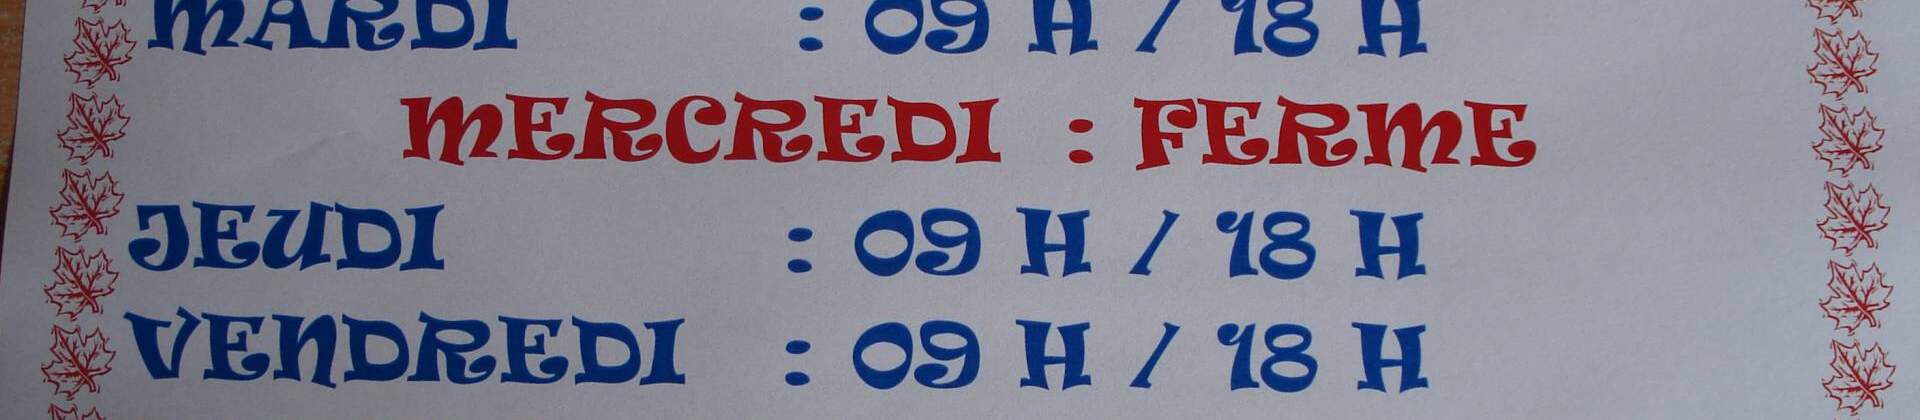 MARDI : 09 H / 18 H
MERCREDI : FERME
JEUDI : 09 H / 18 H
VENDREDI : 09 H / 18 H